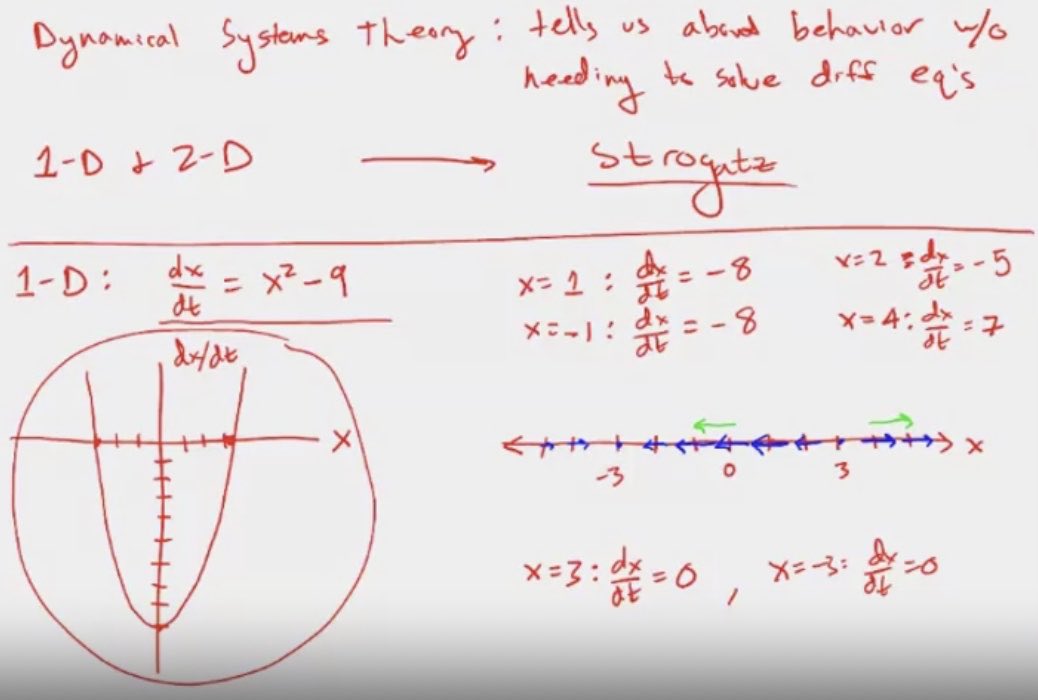 Dynamical Systems Theory: tells us about behavior w/o
needing to solve diff eq's
1-D + 2-D → Strogatz
1-D: dx/dt = x² - 9
x = 1 : dx/dt = -8
x=2 : dx/dt = -5
x = -1 : dx/dt = -8
x=4 : dx/dt = 7
dx/dt
x
-3 0 3 x
x=3 : dx/dt = 0 , x=-3 : dx/dt = 0